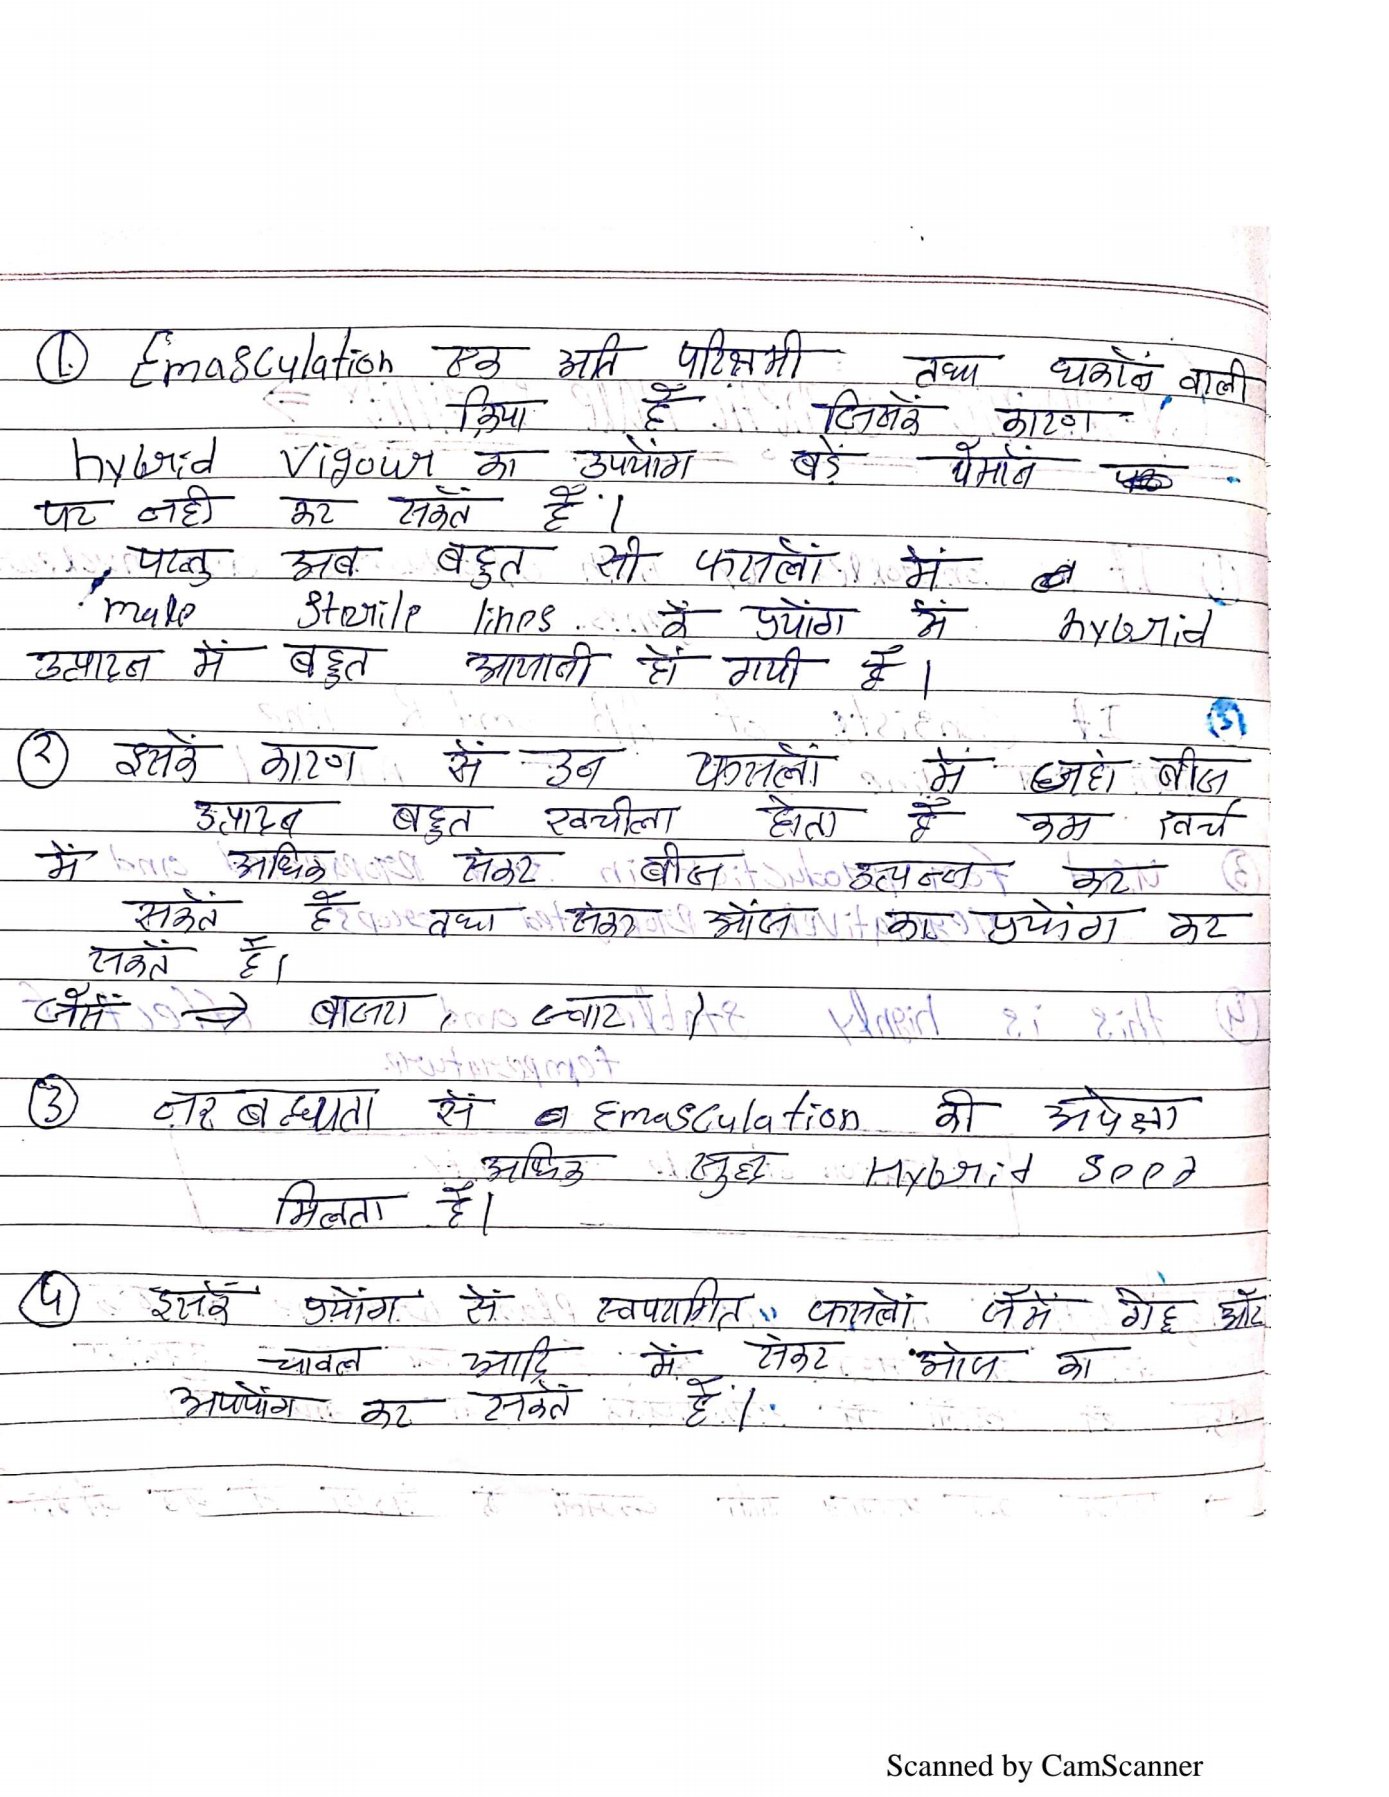 ① Emasculation एक अति परिश्रमी तथा थकाने वाली
क्रिया है जिसके कारण
hybrid vigour का उपयोग बड़े पैमाने
पर नही कर सकते हैं।
परन्तु अब बहुत सी फसलों में
male sterile lines के प्रयोग से hybrid
उत्पादन में बहुत आसानी हो गयी है।
(5)
② इसके कारण से उन फसलों में जहां बीज
उत्पादन बहुत खर्चीला होता है कम खर्च
में अधिक संकर बीज उत्पन्न कर
सकते हैं तथा संकर ओज का प्रयोग कर
सकते हैं।
जैसे → बाजरा, ज्वार।
③ नर बन्ध्यता से Emasculation की अपेक्षा
अधिक शुद्ध Hybrid seed
मिलता है।
④ इसके प्रयोग से स्वपरागित फसलों जैसे गेहू और
चावल आदि में संकर ओज का
उपयोग कर सकते हैं।
Scanned by CamScanner